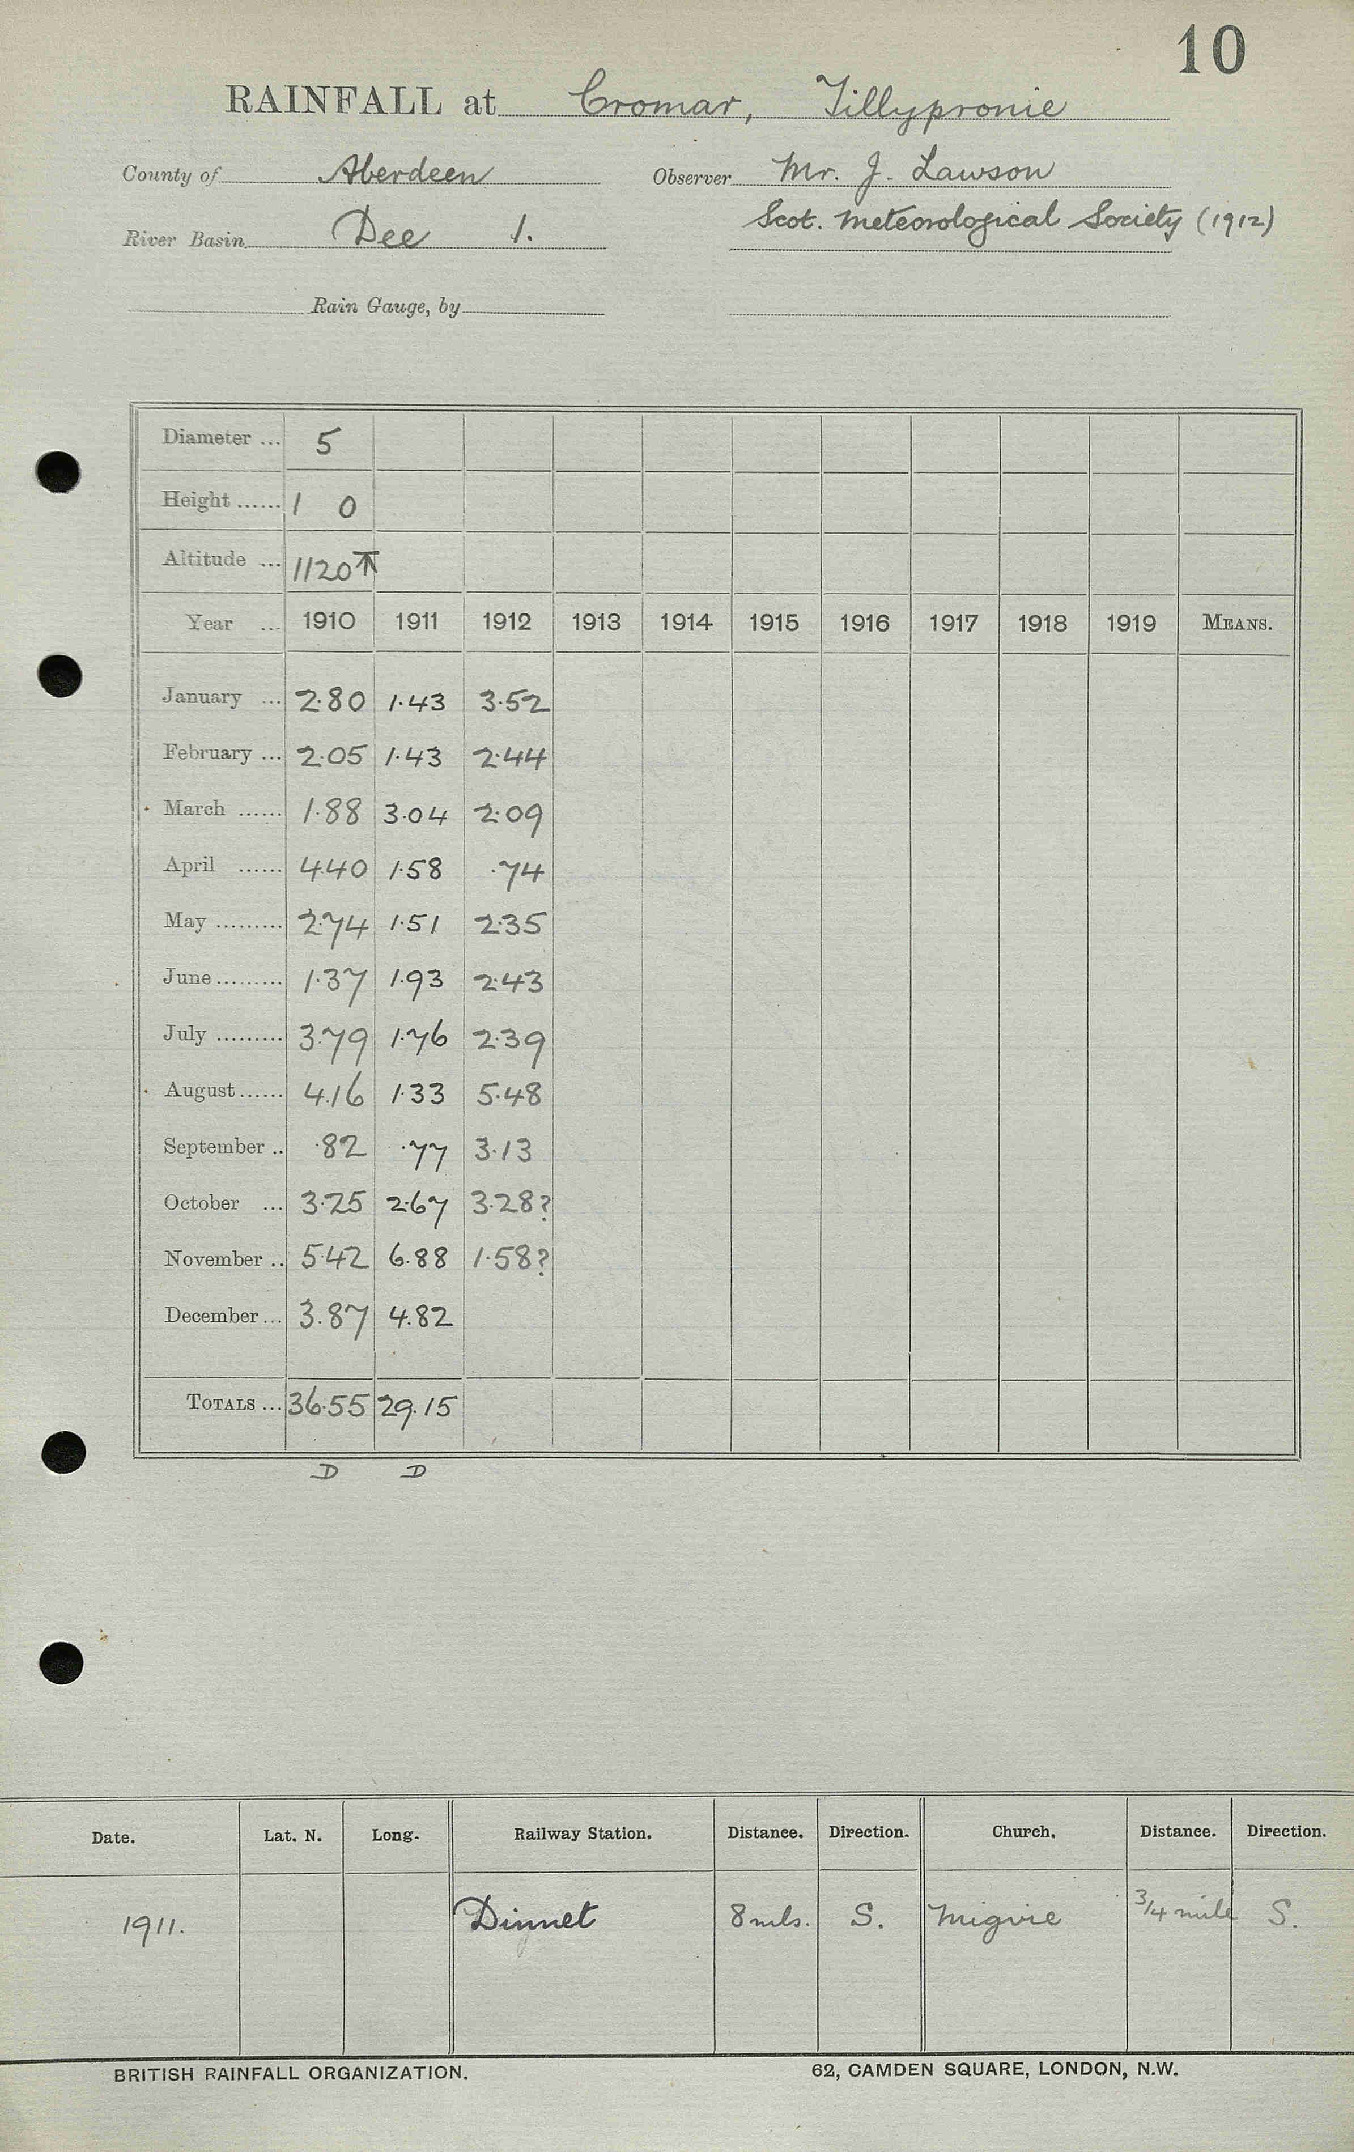 10
RAINFALL at Cromar, Tillypronie
County of Aberdeen Observer Mr. J. Lawson
River Basin Dee 1. Scot. Meteorological Society (1912)
Rain Gauge, by
Diameter ... 5
Height ...... 1 0
Altitude ... 1120
Year ... 1910 1911 1912 1913 1914 1915 1916 1917 1918 1919 MEANS.
January ... 2.80 1.43 3.52
February ... 2.05 1.43 2.44
March ...... 1.88 3.04 2.09
April ...... 4.40 1.58 .74
May ......... 2.74 1.51 2.35
June ......... 1.37 1.93 2.43
July ......... 3.79 1.76 2.39
August ...... 4.16 1.33 5.48
September .. .82 .77 3.13
October ... 3.25 2.67 3.28?
November .. 5.42 6.88 1.58?
December ... 3.87 4.82
TOTALS ... 36.55 29.15
D D
Date. Lat. N. Long. Railway Station. Distance. Direction. Church. Distance. Direction.
1911. Dinnet 8 mls. S. Migvie 3/4 mile S.
BRITISH RAINFALL ORGANIZATION. 62, CAMDEN SQUARE, LONDON, N.W.